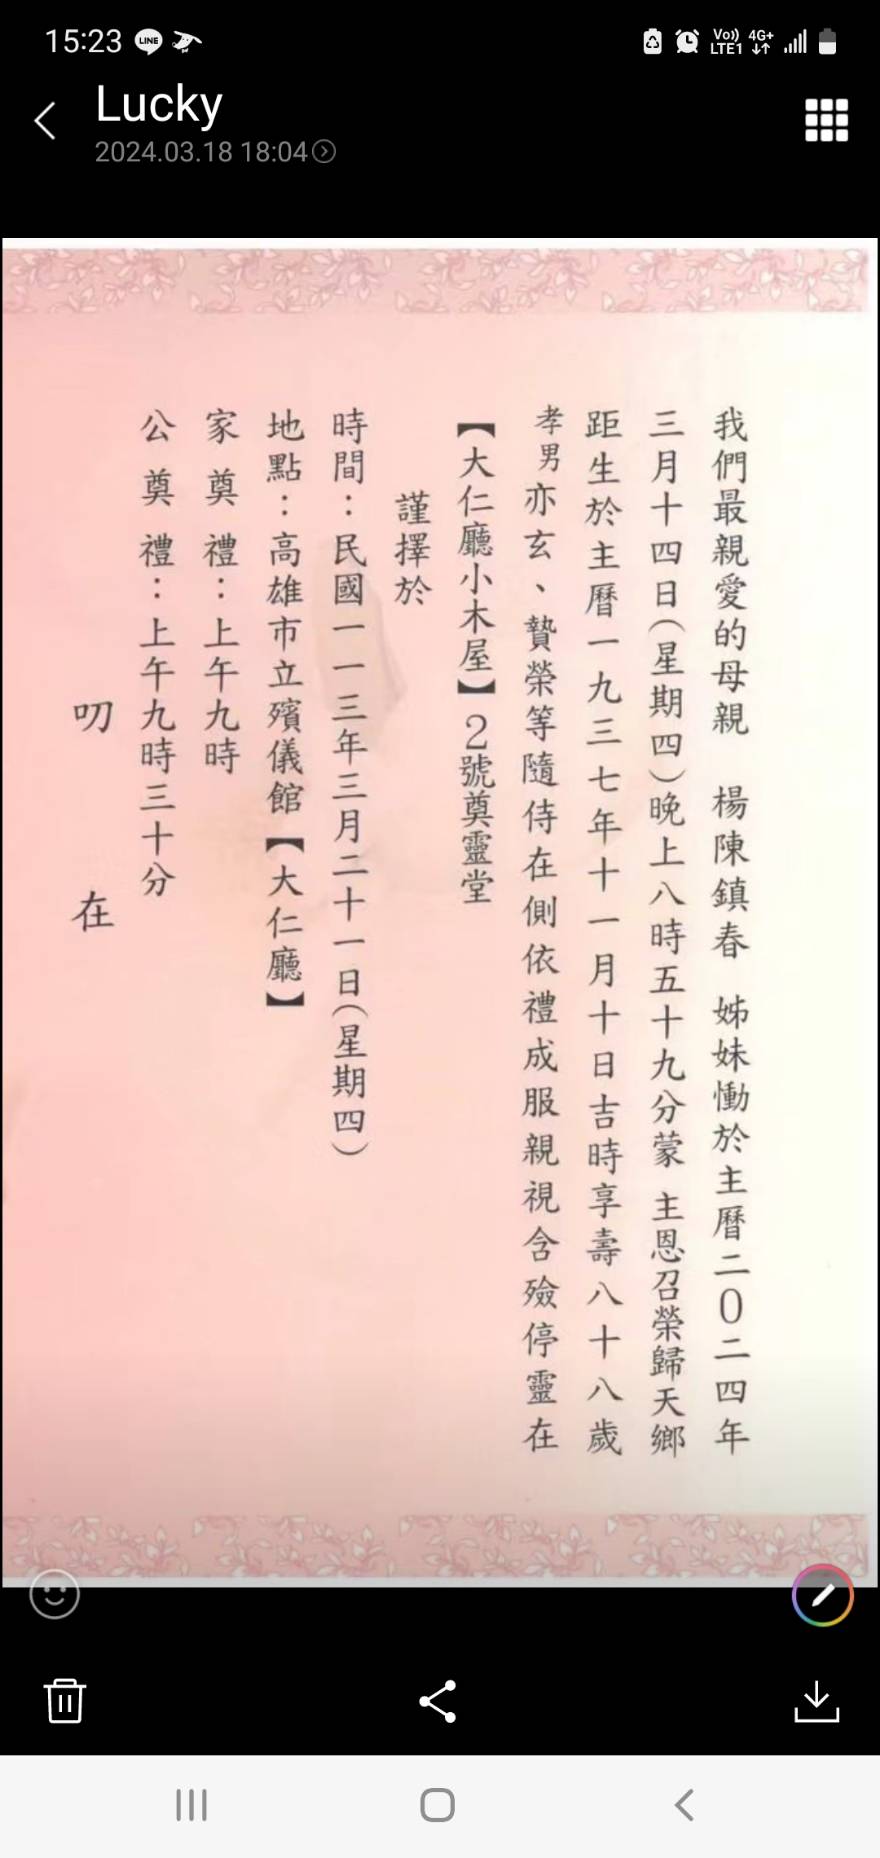 15:23
LINE
Vo)) LTE1 4G+
Lucky
2024.03.18 18:04
我們最親愛的母親 楊陳鎮春 姊妹慟於主曆二0二四年
三月十四日(星期四)晚上八時五十九分蒙 主恩召榮歸天鄉
距生於主曆一九三七年十一月十日吉時享壽八十八歲
孝男亦玄、贊榮等隨侍在側依禮成服親視含殮停靈在
【大仁廳小木屋】2號奠靈堂
謹擇於
時間:民國一一三年三月二十一日(星期四)
地點:高雄市立殯儀館【大仁廳】
家奠禮:上午九時
公奠禮:上午九時三十分
叨 在